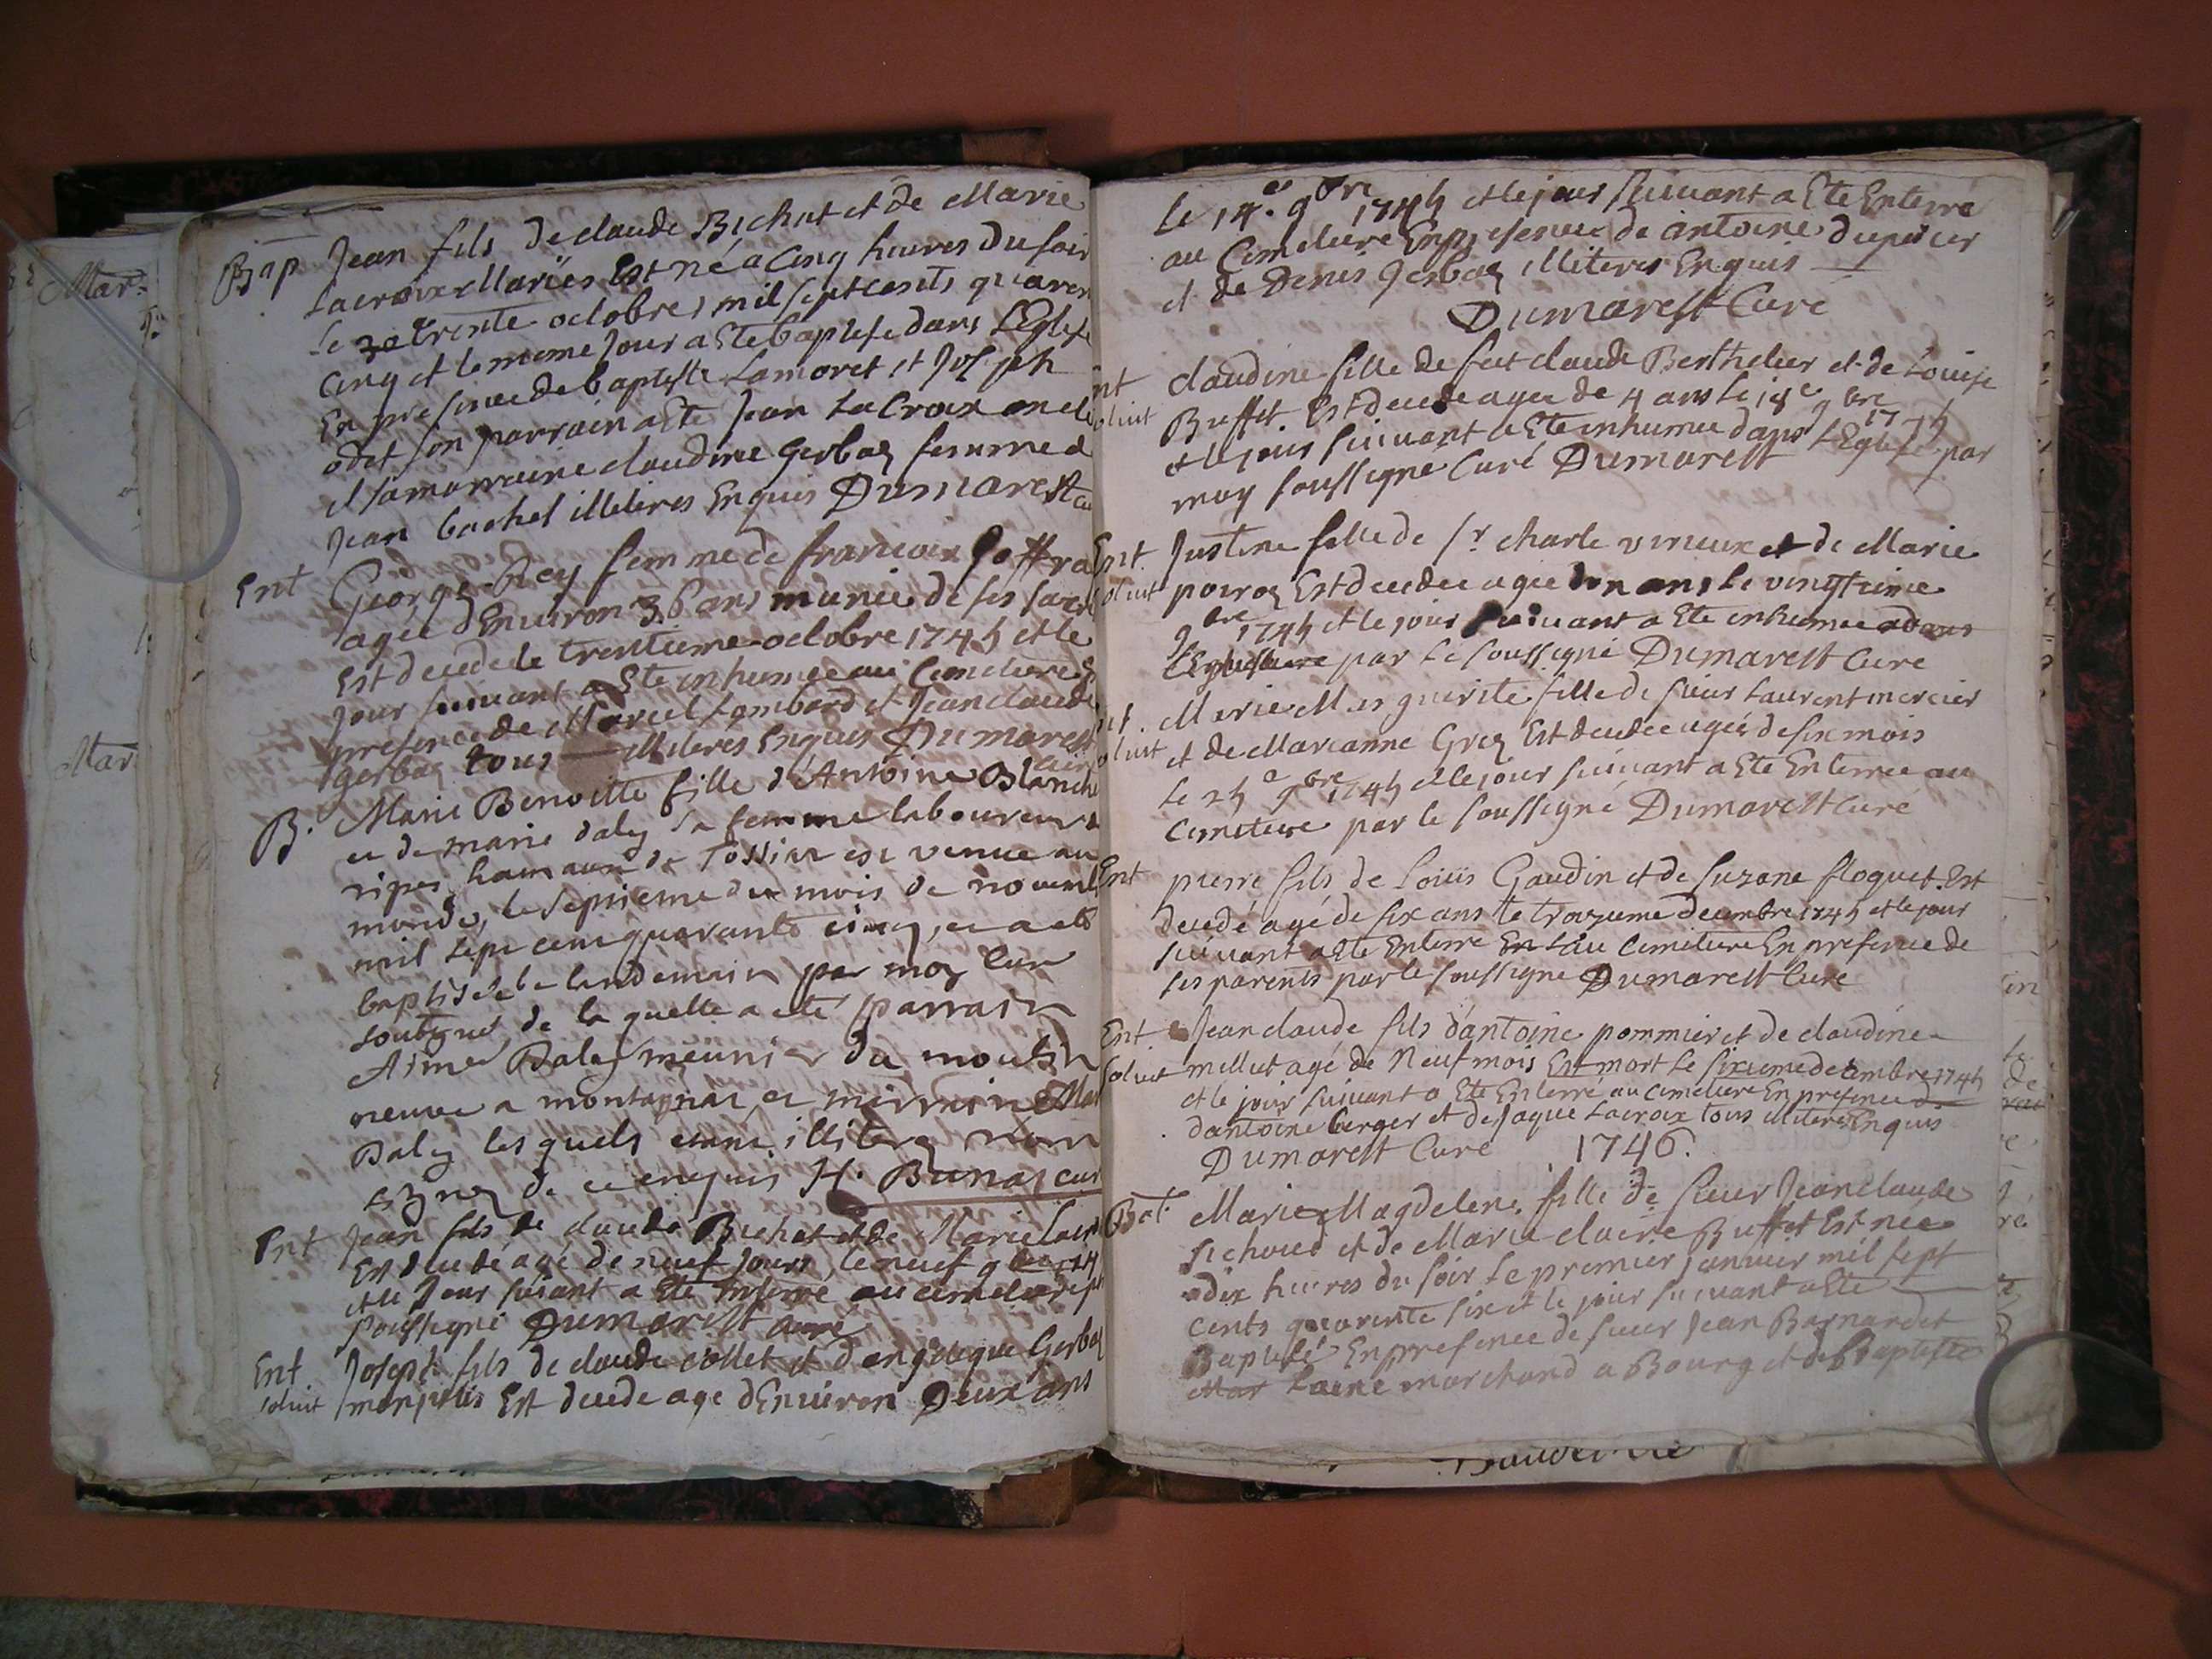 Bap Jean fils de claude Bichat et de Marie
Lacroix Mariés Est né a Cinq heures du soir
Le 30 trente octobre mil sept cents quaran
Cinq et le meme Jour a Ete baptise dans L'Eglise
En presence de baptiste Lamoret et Joseph
odet son parrain a Ete Jean La Croix oncle
et sa marraine claudine Gerbaz femme d
Jean bachel illiteres Enquis Dumarest cu
Ent George Rey femme de francois
agee d'Environ 36 ans munie de ses sacre
Est decedé le trentieme octobre 1745 et le
Jour suivant a Ete inhumée au Cimetiere
presence de Marcel Lombard et Jean claude
gerbaz tous illiteres Enquis Dumarest
Curé
B. Marie Benoitte fille d'Antoine Blanch
et de marie daley sa femme laboureur
hameau de Tossiat est venue au
monde, le septieme du mois de novemb
mil sept cent quarante cinq, et a eté
baptisée le landemain par moy Cure
soubsigné, de la quelle a eté parrain
Aimé Daley meunier du moulin
neuve a montagnat et mirraine Mar
Daley les quels etant illiteres non
signez de ce enquis H. Bunaz cur
Ent Jean fils de claude Bichat et de Marie Lacr
Est decedé agé de neuf Jours, le neuf 9bre 174
et le Jour suivant a Ete Enterré au cimetiere p
soussigné Dumarest curé
Ent Joseph fils de claude collet et d'angelique Gerbaz
soluit Est decede age d'Environ Deux ans
le 14.e 9bre 1745 et le jour suivant a Ete Enterré
au Cimetiere En presence de antoine dupuier
et de Denis gerbaz illiteres Enquis
Dumarest Curé
nt claudine fille de feu claude Berthelier et de Louise
oluit Buffet Est decedé agee de 4 ans le 18e 9bre 1745
et le jour suivant a Ete inhumee dans L'Eglise par
moy soussigné Curé Dumarest
Ent. Justine fille de sr charle vineux et de Marie
oluit poiroz Est decedee agee d'un an le vingtieme
9bre 1745 et le jour suivant a Ete inhumee dans
par le soussigné Dumarest Curé
nt. Marie Marguerite fille de sieur Laurent mercier
oluit et de Marianne Grez Est decedee agée de six mois
le 25e 9bre 1745 et le jour suivant a Ete Enterree au
Cimetiere par le soussigné Dumarest Curé
Ent pierre fils de Louis Gaudin et de suzane floquet Est
decedé agé de six ans le trozieme decembre 1745 et le jour
suivant a Ete Enterré au Cimetiere En presence de
ses parents par le soussigné Dumarest Curé
Ent. Jean claude fils d'antoine pommier et de claudine
soluit millet agé de Neuf mois Est mort le sixieme decembre 1745
et le jour suivant a Ete Enterré au cimetiere En presence de
d'antoine berger et de Jaque Lacroix tous illiteres Enquis
Dumarest Curé 1746.
Bat. Marie Magdelene fille de sieur Jean claude
sichoud et de Marie claire Buffet Est née
a dix heures du soir le premier janvier mil sept
cents quarente six et le jour suivant a Ete
Baptisé En presence de sieur Jean Bernardet
marchand a Bourg et de Baptiste